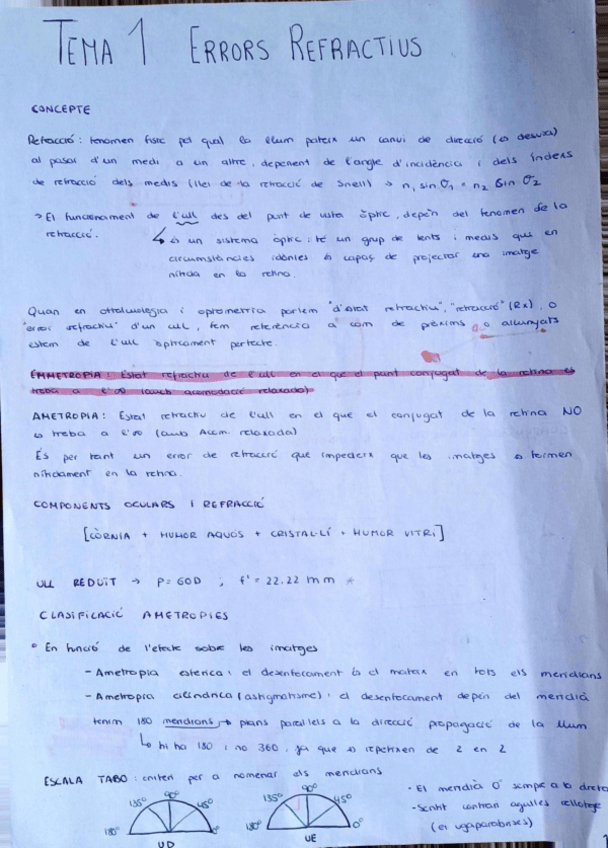 TEMA 1 ERRORS REFRACTIUS
CONCEPTE
Refracció: fenomen físic pel qual la llum pateix un canvi de direcció (es desvia)
al pasar d'un medi a un altre, depenent de l'angle d'incidència i dels índexs
de refracció dels medis (llei de la refracció de Snell) → n₁ sin Θ₁ = n₂ sin Θ₂
→ El funcionament de l'ull des del punt de vista òptic, depèn del fenomen de la
refracció.
↳ és un sistema òptic; té un grup de lents i medis que en
circumstàncies idònies és capaç de projectar una imatge
nítida en la retina.
Quan en oftalmologia i optometria parlem "d'estat refractiu", "refracció" (Rx), o
"error refractiu" d'un ull, fem referència a com de pròxims o allunyats
estem de l'ull òpticament perfecte.
EMMETROPIA: Estat refractiu de l'ull en el que el punt conjugat de la retina es
troba a l'∞ (amb acomodació relaxada)
AMETROPIA: Estat refractiu de l'ull en el que el conjugat de la retina NO
es troba a l'∞ (amb Acom. relaxada)
És per tant un error de refracció que impedeix que les imatges es formen
nítidament en la retina.
COMPONENTS OCULARS I REFRACCIÓ
[CÒRNIA + HUMOR AQUÓS + CRISTAL·LÍ + HUMOR VITRI]
ULL REDUÏT → P= 60D ; f' = 22.22 mm *
CLASIFICACIÓ AMETROPIES
• En funció de l'efecte sobre les imatges
- Ametropia esferica: el desenfocament és el mateix en tots els meridians
- Ametropia cilíndrica (astigmatisme): el desenfocament depén del meridià
tenim 180 meridians → plans paral·lels a la direcció propagació de la llum
↳ hi ha 180 i no 360, ja que es repeteixen de 2 en 2
ESCALA TABO: criteri per a nomenar els meridians
- El meridià 0° sempre a la dreta
- Sentit contrari agulles rellotge
180° 135° 90° 45° 0°
UD
180° 135° 90° 45° 0°
UE
1